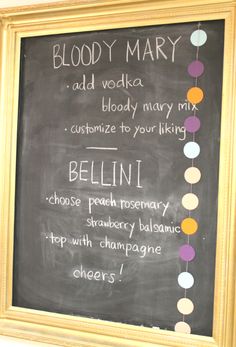 BLOODY MARY
• add vodka
bloody mary mix
• customize to your liking
BELLINI
• choose peach rosemary
strawberry balsamic
• top with champagne
cheers!